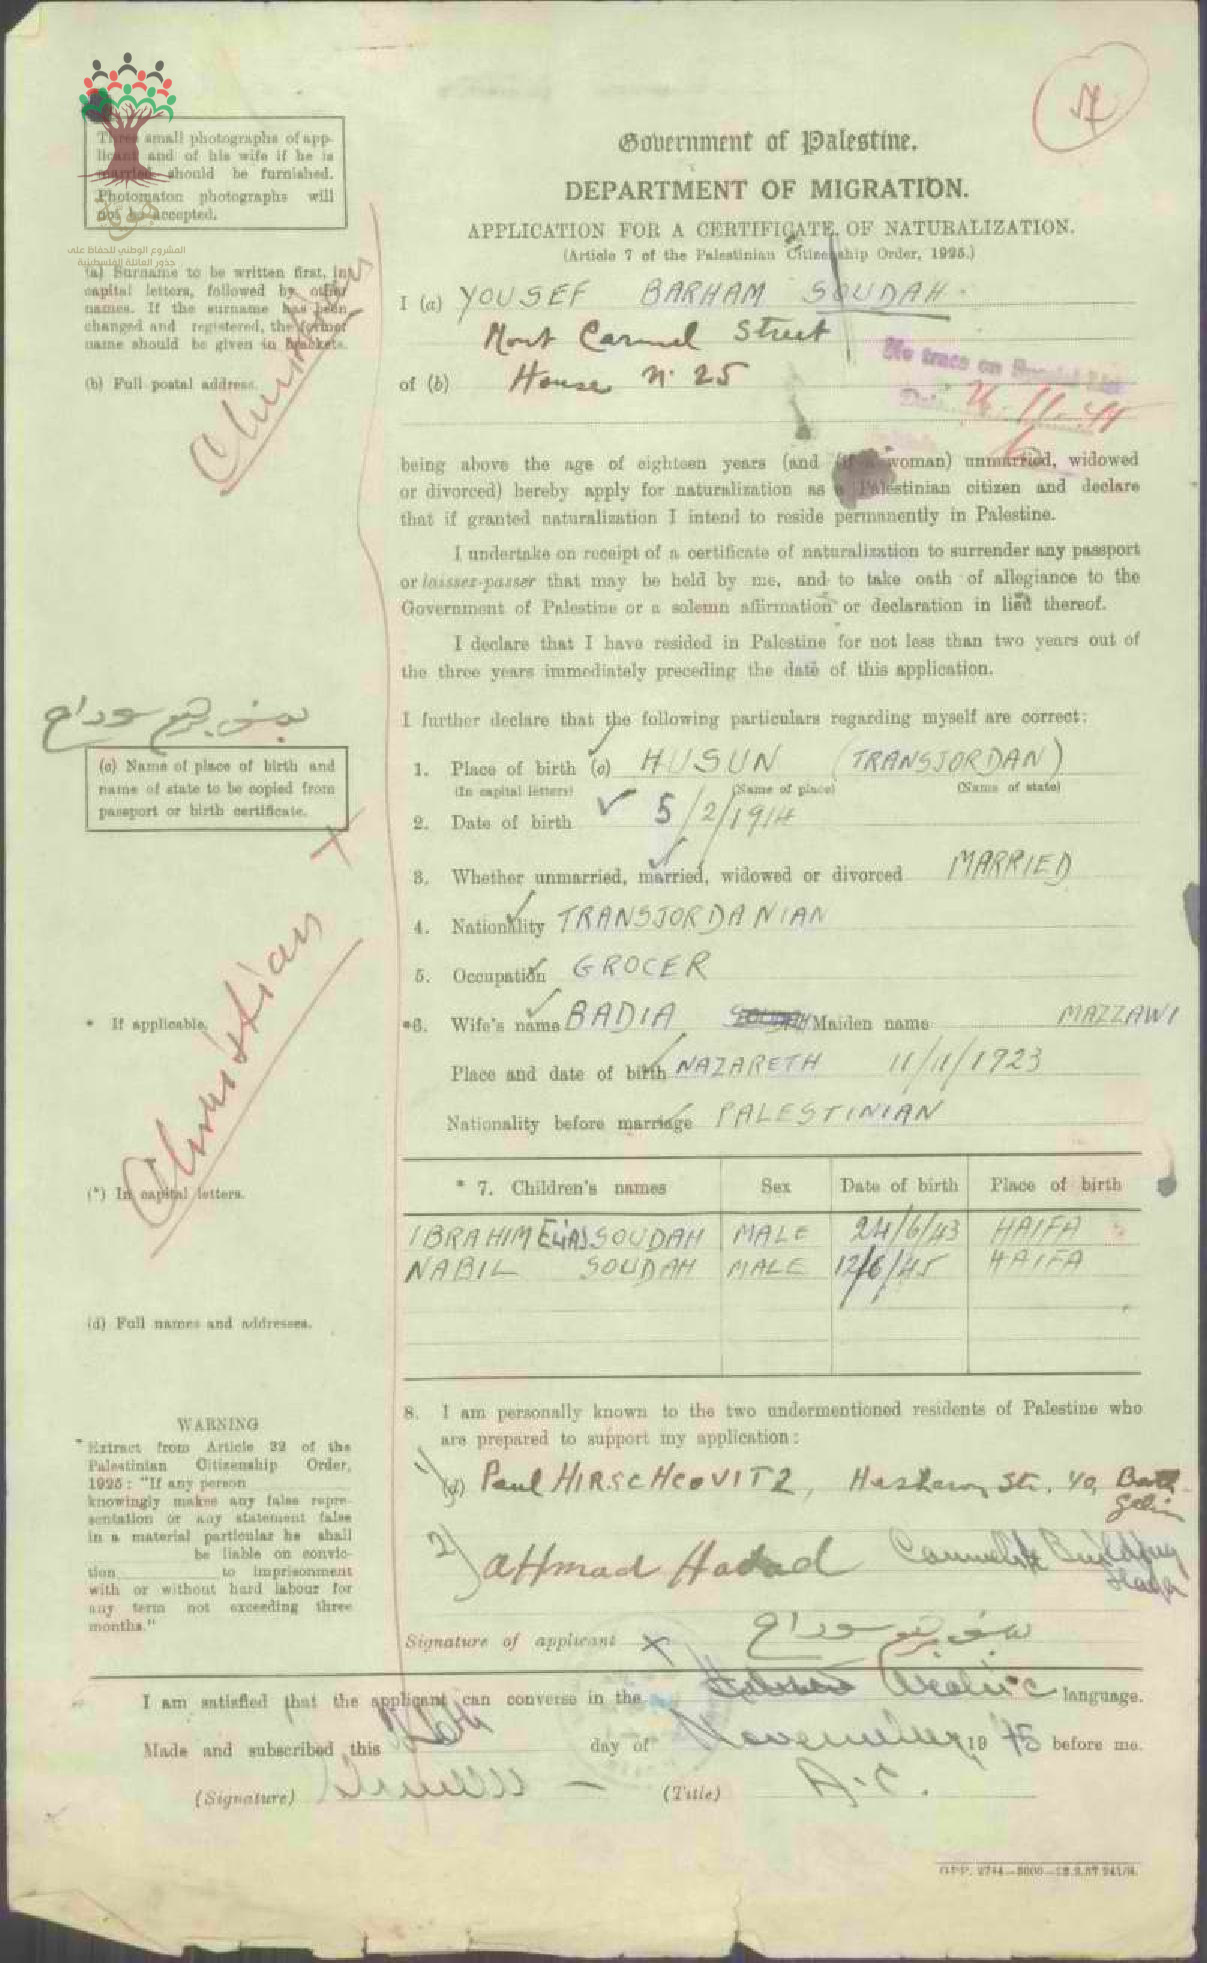 هوية
المشروع الوطني للحفاظ على
جذور العائلة الفلسطينية
Three small photographs of app-
licant and of his wife if he is
married should be furnished.
Photomaton photographs will
not be accepted.
Government of Palestine.
DEPARTMENT OF MIGRATION.
APPLICATION FOR A CERTIFICATE OF NATURALIZATION.
(Article 7 of the Palestinian Citizenship Order, 1925.)
(a) Surname to be written first, in
capital letters, followed by other
names. If the surname has been
changed and registered, the former
name should be given in brackets.
(b) Full postal address.
Christian
I (a) YOUSEF BARHAM SOUDAH.
Mont Carmel Street
of (b) House N. 25
No trace on Special List
Date
being above the age of eighteen years (and (if a woman) unmarried, widowed
or divorced) hereby apply for naturalization as a Palestinian citizen and declare
that if granted naturalization I intend to reside permanently in Palestine.
I undertake on receipt of a certificate of naturalization to surrender any passport
or laissez-passer that may be held by me, and to take oath of allegiance to the
Government of Palestine or a solemn affirmation or declaration in lieu thereof.
I declare that I have resided in Palestine for not less than two years out of
the three years immediately preceding the date of this application.
I further declare that the following particulars regarding myself are correct:
(c) Name of place of birth and
name of state to be copied from
passport or birth certificate.
1. Place of birth (c) HUSUN (TRANSJORDAN)
(In capital letters) (Name of place) (Name of state)
2. Date of birth 5/2/1914
3. Whether unmarried, married, widowed or divorced MARRIED
4. Nationality TRANSJORDANIAN
5. Occupation GROCER
* If applicable.
*6. Wife's name BADIA Maiden name MAZZAWI
Place and date of birth NAZARETH 11/11/1923
Nationality before marriage PALESTINIAN
Christian
(*) In capital letters.
* 7. Children's names Sex Date of birth Place of birth
IBRAHIM Elias SOUDAH MALE 24/6/43 HAIFA
NABIL SOUDAH MALE 12/6/45 HAIFA
(d) Full names and addresses.
8. I am personally known to the two undermentioned residents of Palestine who
are prepared to support my application:
1) (d) Paul HIRSCHCOVITZ, St. 40, Bath
Galim
2) Ahmad Hadad Carmelite Building
Haifa
WARNING
"Extract from Article 22 of the
Palestinian Citizenship Order,
1925: "If any person
knowingly makes any false repre-
sentation or any statement false
in a material particular he shall
be liable on convic-
tion to imprisonment
with or without hard labour for
any term not exceeding three
months."
Signature of applicant X
I am satisfied that the applicant can converse in the Arabic language.
Made and subscribed this day of November 1945 before me.
(Signature) (Title) A.C.